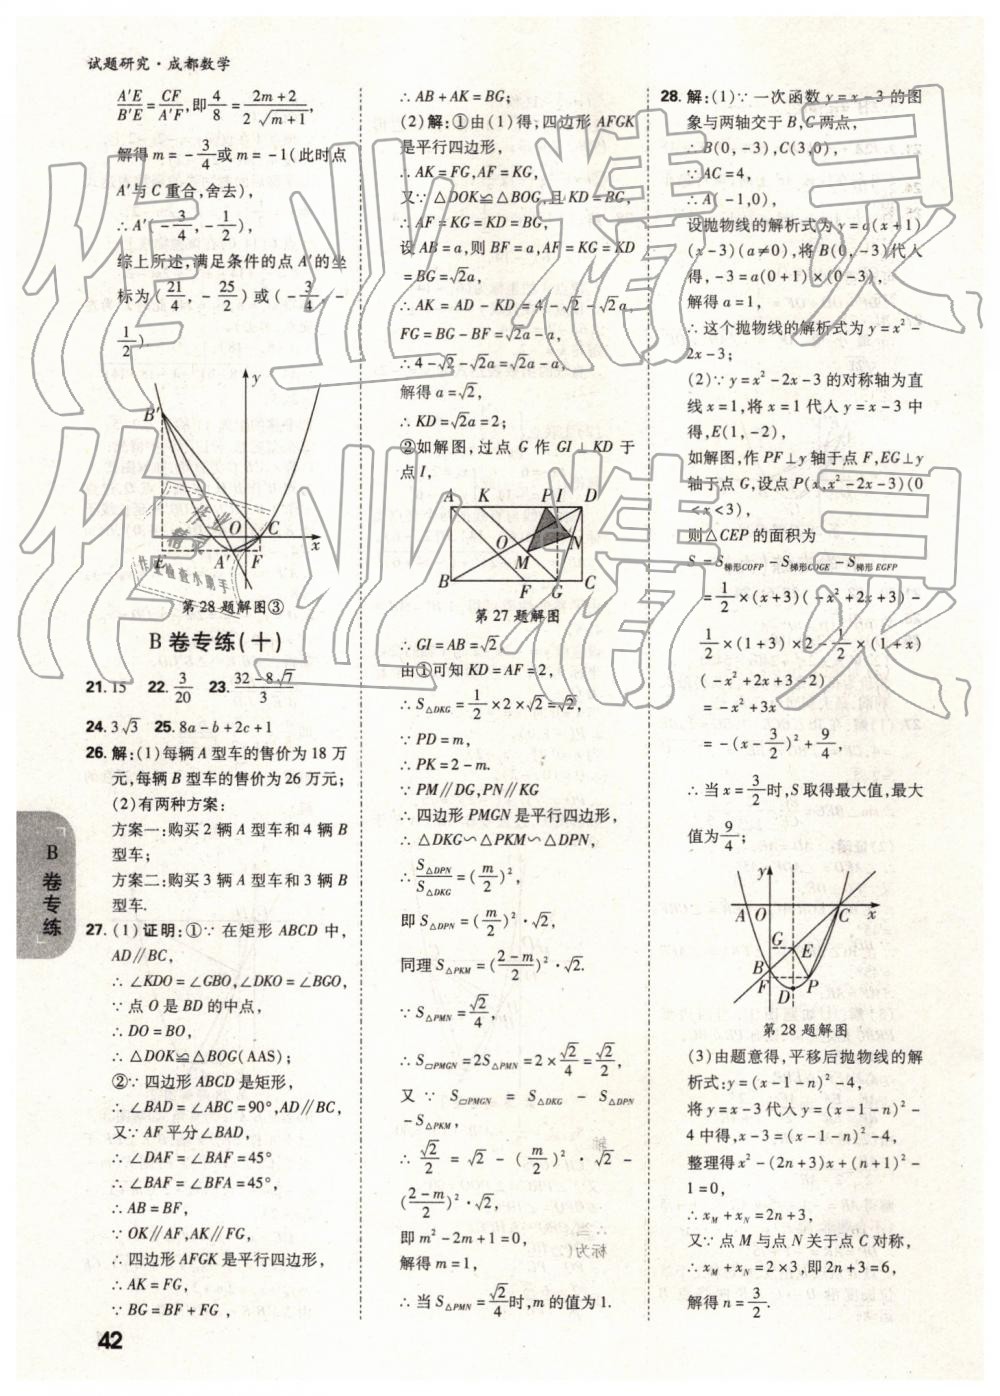 试题研究·成都数学
A′E/B′E=CF/A′F,即4/8=(2m+2)/(2√(m+1)),
解得m=-3/4或m=-1(此时点
A′与C重合,舍去),
∴A′(-3/4,-1/2),
综上所述,满足条件的点A′的坐
标为(21/4,-25/2)或(-3/4,-
1/2)
B′ y O C x E A′ F
第28题解图③
B卷专练(十)
21.15 22.3/20 23.(32-8√7)/3
24.3√3 25.8a-b+2c+1
26.解:(1)每辆A型车的售价为18万
元,每辆B型车的售价为26万元;
(2)有两种方案:
方案一:购买2辆A型车和4辆B
型车;
方案二:购买3辆A型车和3辆B
型车.
27.(1)证明:①∵在矩形ABCD中,
AD∥BC,
∴∠KDO=∠GBO,∠DKO=∠BGO,
∵点O是BD的中点,
∴DO=BO,
∴△DOK≌△BOG(AAS);
②∵四边形ABCD是矩形,
∴∠BAD=∠ABC=90°,AD∥BC,
又∵AF平分∠BAD,
∴∠DAF=∠BAF=45°
∴∠BAF=∠BFA=45°,
∴AB=BF,
∵OK∥AF,AK∥FG,
∴四边形AFGK是平行四边形,
∴AK=FG,
∵BG=BF+FG,
∴AB+AK=BG;
(2)解:①由(1)得,四边形AFGK
是平行四边形,
∴AK=FG,AF=KG,
又∵△DOK≌△BOG,且KD=BG,
∴AF=KG=KD=BG,
设AB=a,则BF=a,AF=KG=KD
=BG=√2a,
∴AK=AD-KD=4-√2-√2a,
FG=BG-BF=√2a-a,
∴4-√2-√2a=√2a-a,
解得a=√2,
∴KD=√2a=2;
②如解图,过点G作GI⊥KD于
点I,
A K P I D O N M B F G C
第27题解图
∴GI=AB=√2,
由①可知KD=AF=2,
∴S△DKG=1/2×2×√2=√2,
∵PD=m,
∴PK=2-m.
∵PM∥DG,PN∥KG
∴四边形PMGN是平行四边形,
∴△DKG∽△PKM∽△DPN,
∴S△DPN/S△DKG=(m/2)²,
即S△DPN=(m/2)²·√2,
同理S△PKM=((2-m)/2)²·√2.
∵S△PMN=√2/4,
∴S▱PMGN=2S△PMN=2×√2/4=√2/2,
又∵S▱PMGN=S△DKG-S△DPN
-S△PKM,
∴√2/2=√2-(m/2)²·√2-
((2-m)/2)²·√2,
即m²-2m+1=0,
解得m=1,
∴当S△PMN=√2/4时,m的值为1.
28.解:(1)∵一次函数y=x-3的图
象与两轴交于B,C两点,
∴B(0,-3),C(3,0),
∵AC=4,
∴A(-1,0),
设抛物线的解析式为y=a(x+1)
(x-3)(a≠0),将B(0,-3)代入
得,-3=a(0+1)×(0-3),
解得a=1,
∴这个抛物线的解析式为y=x²-
2x-3;
(2)∵y=x²-2x-3的对称轴为直
线x=1,将x=1代入y=x-3中
得,E(1,-2),
如解图,作PF⊥y轴于点F,EG⊥y
轴于点G,设点P(x,x²-2x-3)(0
<x<3),
则△CEP的面积为
S=S梯形COFP-S梯形COGE-S梯形EGFP
=1/2×(x+3)(-x²+2x+3)-
1/2×(1+3)×2-1/2×(1+x)
(-x²+2x+3-2)
=-x²+3x
=-(x-3/2)²+9/4,
∴当x=3/2时,S取得最大值,最大
值为9/4;
y A O C x G E B F D P
第28题解图
(3)由题意得,平移后抛物线的解
析式:y=(x-1-n)²-4,
将y=x-3代入y=(x-1-n)²-
4中得,x-3=(x-1-n)²-4,
整理得x²-(2n+3)x+(n+1)²-
1=0,
∴xM+xN=2n+3,
又∵点M与点N关于点C对称,
∴xM+xN=2×3,即2n+3=6,
解得n=3/2.
B卷专练
42
作业精灵
作业精灵
作业
精灵
作业检查小助手